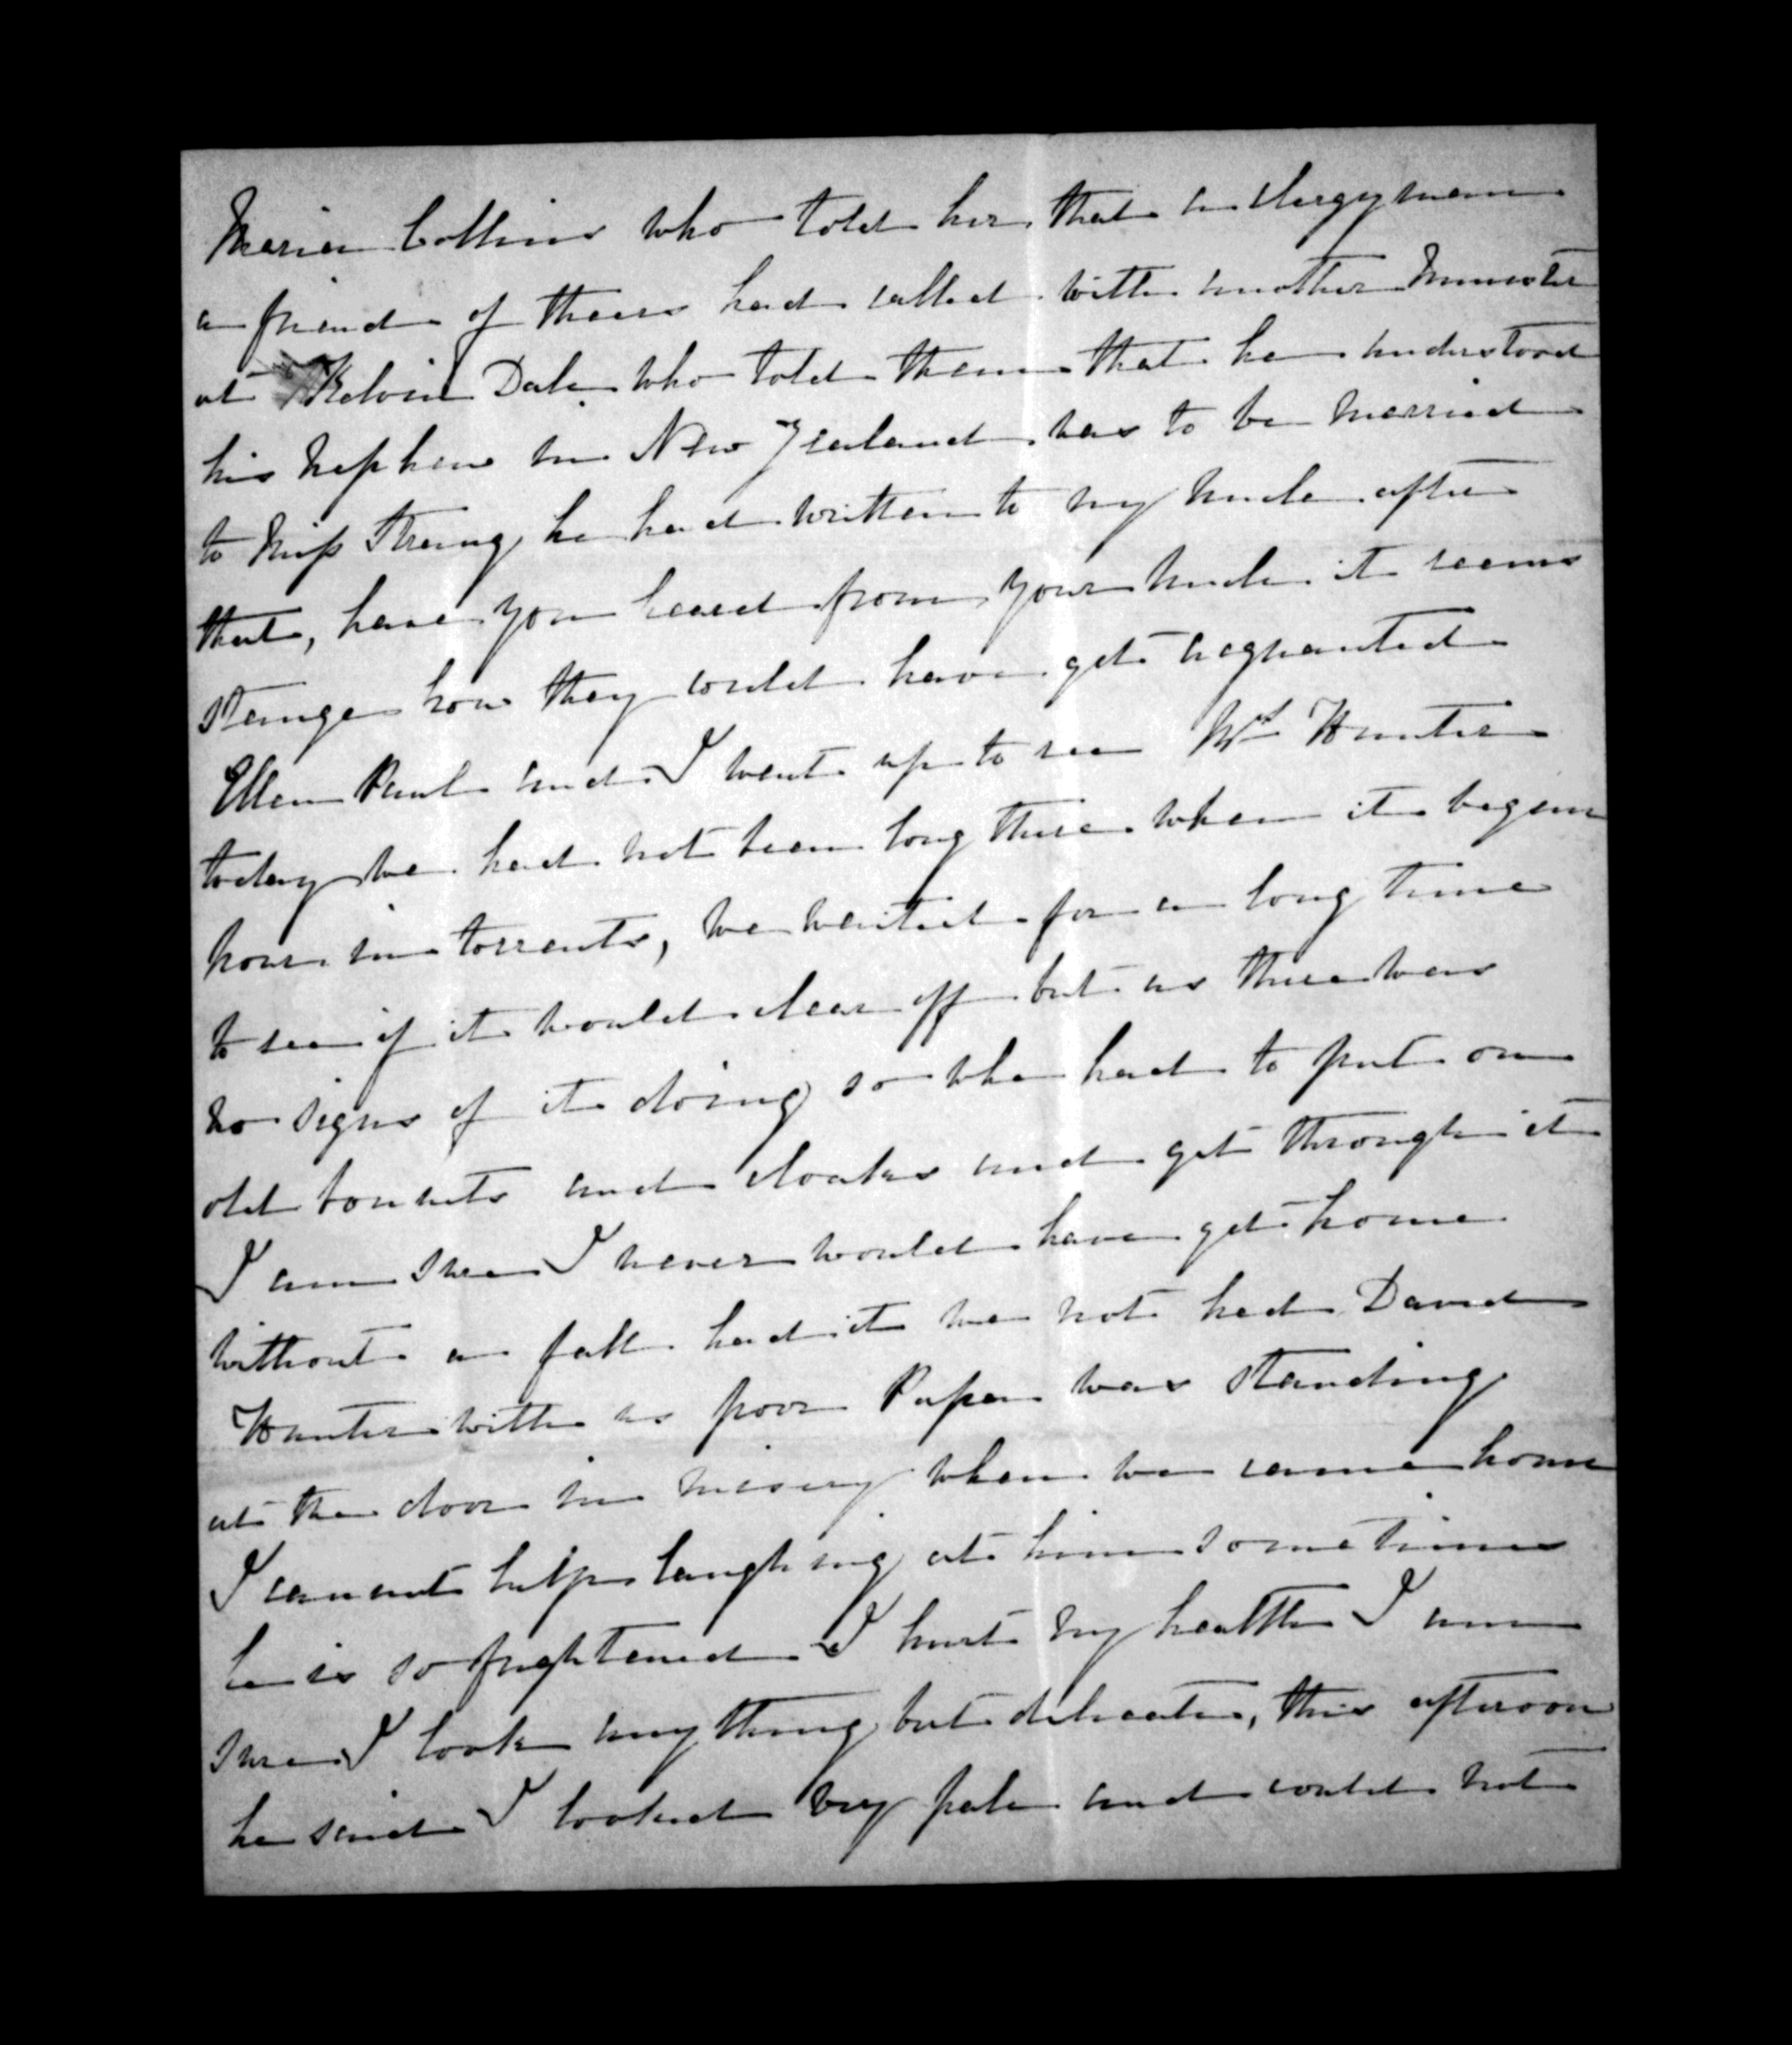 Maria Collins who told her that a clergyman
a friend of theirs had called with another Minister
at Kelvin Dale who told them that he understood
his nephew in New Zealand was to be married
to Miss Strang, he had written to my Uncle after
that, have you heard from your Uncle it seems
stange how they could have get acqanted
Ellen Paul and I went up to see Mrs Hunter
today we had not been long there when it began
pour in torrents, we waited for a long time
to see if it would clear off but as there was
no signs of it doing so whe had to put on
old bonnets and cloaks and get through it
I am sure I never would have get home
without a fall had it we not had David
Hunter with us poor Papa was standing
at the door in misery when we came home
I cannot help laughing at him sometimes
he is so frightened I hurt my health I am
sure I look anything but delicate, this afteroon
he said I looked very pale and could not